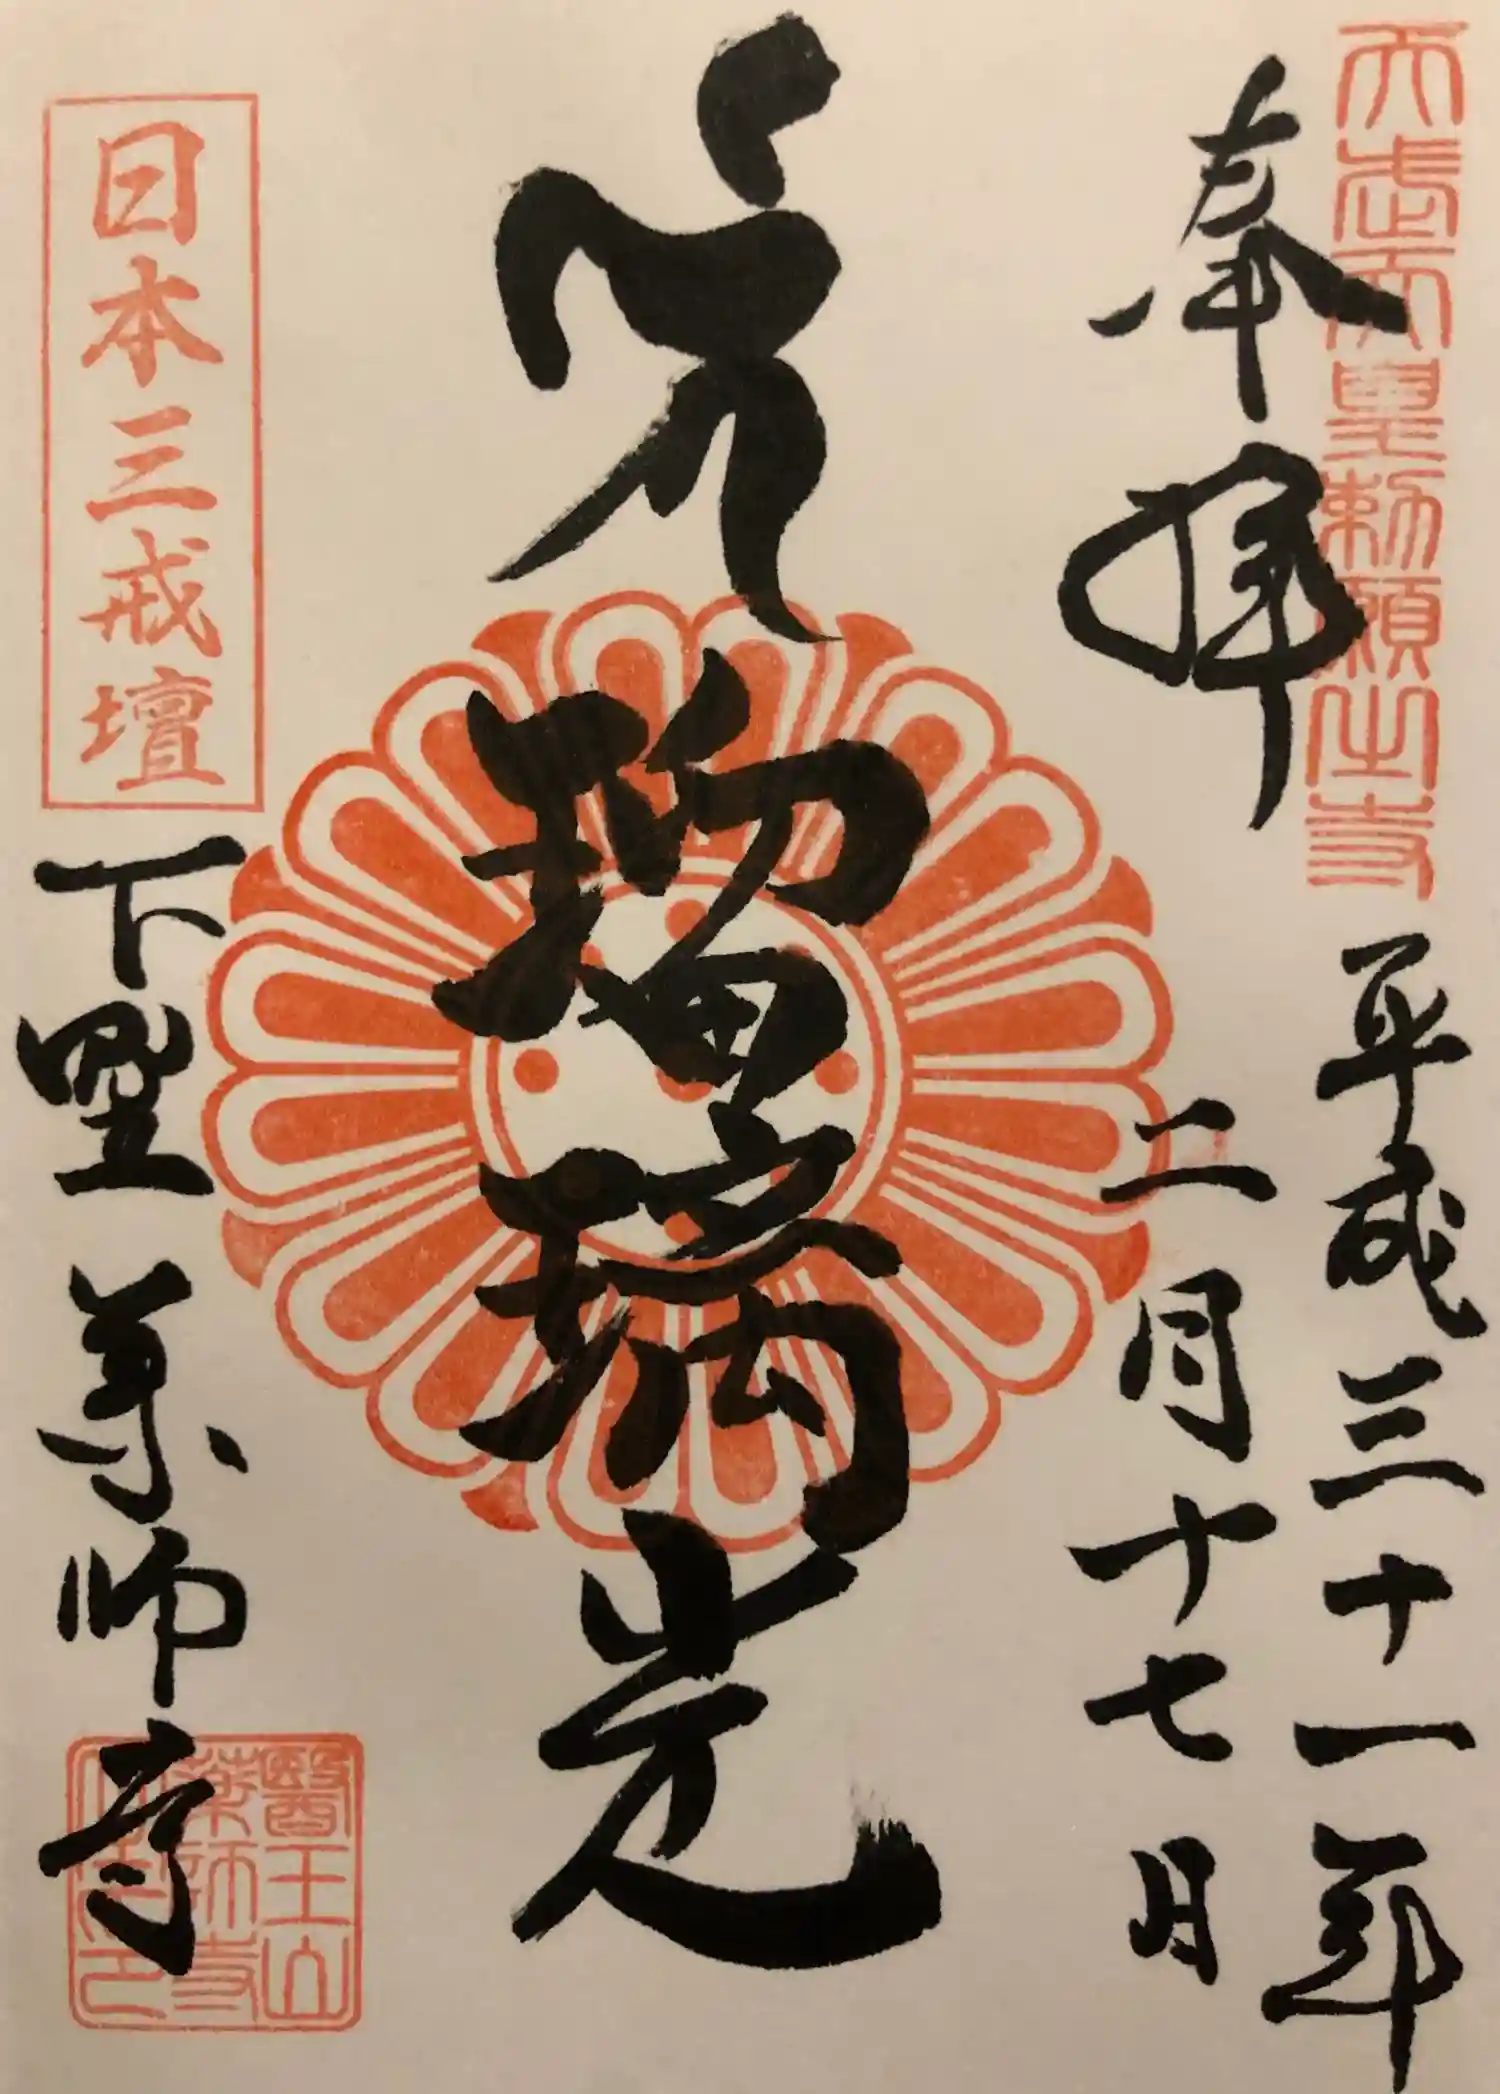 天武天皇勅願之寺
奉拝
平成三十一年
二月十七日
瑠璃光
日本三戒壇
下野 薬師寺
醫王山
薬師寺